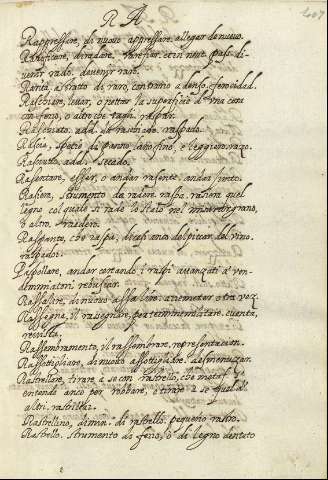 R A
Rappressare, di nuovo appressare. allegar de nuevo.
Rarificare, diradare, rarificar. et in neut. pass. di-
venir rado. devenir raro.
Rarità, astratto di raro, contrario a denso.
Raschiare, levar, o nettar la superficie d' una cosa
con ferro, o altro che tagli. raspar.
Raschiato. add. da raschiare, raspado.
Rascia, spetie di panno,
Rasciutto, add. secado.
Rasentare, esser, o andar rasente. andar junto.
Rasiera, strumento da radere. raspa. rasiera quel
legno col quale si rade lo staio nel misurar grano,
ò altro. rasero.
Raspante, che raspa, dicesi anco del piccar del vino.
raspador.
Raspollare, andar cercando i raspi avanzati a' ven-
demmiatori. rebuscar.
Rassalire, di nuovo assalire. acometer otra vez.
Rassegna, il rassegnare, per termine militare. cuenta,
revista.
Rassembramento, il rassembrare. representacion.
Rassottigliare, di nuovo assottigliare. desmenuzar.
Rastrellare, tirare a se con rastrello, che
entende anco per robbare, o tirare a se quel d'
altri. rastrillar.
Rastrellino, dimin. di rastrello. pequeño rastro.
Rastrello. strumento di ferro, ò di legno dentato